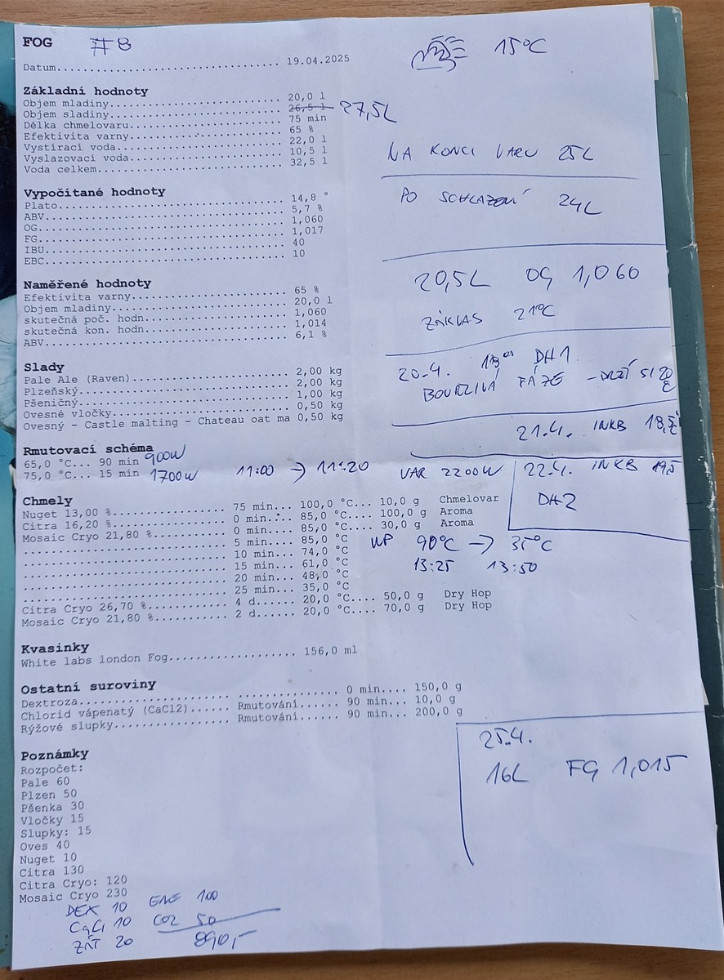 FOG #8
15°C
Datum........................................ 19.04.2025
Základní hodnoty
Objem mladiny................................ 20,0 l
Objem sladiny................................ 26,5 l 27,5L
Délka chmelovaru............................. 75 min
Efektivita varny............................. 65 %
Vystírací voda............................... 22,0 l
Vyslazovací voda............................. 10,5 l
Voda celkem.................................. 32,5 l
NA KONCI VARU 25L
Vypočítané hodnoty
Plato........................................ 14,8 °
ABV.......................................... 5,7 %
OG........................................... 1,060
FG........................................... 1,017
IBU.......................................... 40
EBC.......................................... 10
PO SCHLAZENÍ 24L
20,5L OG 1,060
ZÁKLAS 21°C
Naměřené hodnoty
Efektivita varny............................. 65 %
Objem mladiny................................ 20,0 l
skutečná poč. hodn........................... 1,060
skutečná kon. hodn........................... 1,014
ABV.......................................... 6,1 %
20.4. DH1
BOUŘLIVÁ FÁZE
Slady
Pale Ale (Raven)............................. 2,00 kg
Plzeňský..................................... 2,00 kg
Pšeničný..................................... 1,00 kg
Ovesné vločky................................ 0,50 kg
Ovesný - Castle malting - Chateau oat ma 0,50 kg
21.4. INKB
Rmutovací schéma
65,0 °C... 90 min 900W
75,0 °C... 15 min 1700W 11:00 → 11:20 VAR 2200W
22.4. INKB 19,5
DH2
Chmely
Nuget 13,00 %.................. 75 min... 100,0 °C... 10,0 g Chmelovar
Citra 16,20 %.................. 0 min... 85,0 °C... 100,0 g Aroma
Mosaic Cryo 21,80 %............ 0 min... 85,0 °C... 30,0 g Aroma
............................... 5 min... 85,0 °C
............................... 10 min... 74,0 °C
............................... 15 min... 61,0 °C
............................... 20 min... 48,0 °C
............................... 25 min... 35,0 °C
WP 90°C → 35°C
13:25 13:50
Citra Cryo 26,70 %............. 4 d..... 20,0 °C.... 50,0 g Dry Hop
Mosaic Cryo 21,80 %............ 2 d..... 20,0 °C.... 70,0 g Dry Hop
Kvasinky
White labs london Fog.................... 156,0 ml
Ostatní suroviny
Dextroza................................. 0 min.... 150,0 g
Chlorid vápenatý (CaCl2)...... Rmutování...... 90 min... 10,0 g
Rýžové slupky................. Rmutování...... 90 min... 200,0 g
25.4.
16L FG 1,015
Poznámky
Rozpočet:
Pale 60
Plzen 50
Pšenka 30
Vločky 15
Slupky: 15
Oves 40
Nuget 10
Citra 130
Citra Cryo: 120
Mosaic Cryo 230
DEX 10 ENE 100
CaCl 10 CO2 50
ŽÁT 20 890,-